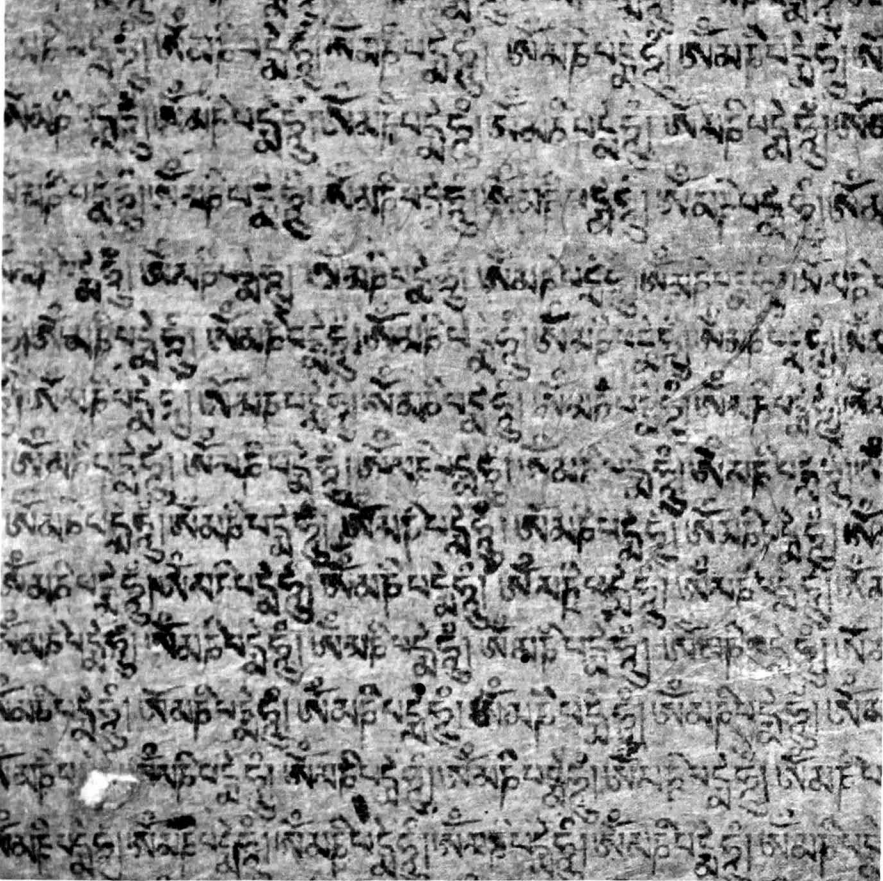 མཎིཔདྨེཧཱུྃ། ཨོཾམཎིཔདྨེཧཱུྃ། ཨོཾམཎིཔདྨེཧཱུྃ། ཨོཾམཎིཔདྨེཧཱུྃ། ཨོཾམཎིཔདྨེཧཱུྃ། ཨོཾ
ཨོཾམཎིཔདྨེཧཱུྃ། ཨོཾམཎིཔདྨེཧཱུྃ། ཨོཾམཎིཔདྨེཧཱུྃ། ཨོཾམཎིཔདྨེཧཱུྃ། ཨོཾམཎིཔདྨེཧཱུྃ། ཨོཾམ
མཎིཔདྨེཧཱུྃ། ཨོཾམཎིཔདྨེཧཱུྃ། ཨོཾམཎིཔདྨེཧཱུྃ། ཨོཾམཎིཔདྨེཧཱུྃ། ཨོཾམཎིཔདྨེཧཱུྃ། ཨོཾམ
དྨེཧཱུྃ། ཨོཾམཎིཔདྨེཧཱུྃ། ཨོཾམཎིཔདྨེཧཱུྃ། ཨོཾམཎིཔདྨེཧཱུྃ། ཨོཾམཎིཔདྨེཧཱུྃ། ཨོཾམཎིཔ
ཨོཾམཎིཔདྨེཧཱུྃ། ཨོཾམཎིཔདྨེཧཱུྃ། ཨོཾམཎིཔདྨེཧཱུྃ། ཨོཾམཎིཔདྨེཧཱུྃ། ཨོཾམཎིཔདྨེཧཱུྃ། ཨོཾམ
ཨོཾམཎིཔདྨེཧཱུྃ། ཨོཾམཎིཔདྨེཧཱུྃ། ཨོཾམཎིཔདྨེཧཱུྃ། ཨོཾམཎིཔདྨེཧཱུྃ། ཨོཾམཎིཔདྨེཧཱུྃ། ཨོཾམ
ཨོཾམཎིཔདྨེཧཱུྃ། ཨོཾམཎིཔདྨེཧཱུྃ། ཨོཾམཎིཔདྨེཧཱུྃ། ཨོཾམཎིཔདྨེཧཱུྃ། ཨོཾམཎིཔདྨེཧཱུྃ།
ཨོཾམཎིཔདྨེཧཱུྃ། ཨོཾམཎིཔདྨེཧཱུྃ། ཨོཾམཎིཔདྨེཧཱུྃ། ཨོཾམཎིཔདྨེཧཱུྃ། ཨོཾམཎིཔདྨེཧཱུྃ། ཨོཾ
ཨོཾམཎིཔདྨེཧཱུྃ། ཨོཾམཎིཔདྨེཧཱུྃ། ཨོཾམཎིཔདྨེཧཱུྃ། ཨོཾམཎིཔདྨེཧཱུྃ། ཨོཾམཎིཔདྨེཧཱུྃ། ཨོཾམ
ཨོཾམཎིཔདྨེཧཱུྃ། ཨོཾམཎིཔདྨེཧཱུྃ། ཨོཾམཎིཔདྨེཧཱུྃ། ཨོཾམཎིཔདྨེཧཱུྃ། ཨོཾམཎིཔདྨེཧཱུྃ། ཨོཾམ
ཨོཾམཎིཔདྨེཧཱུྃ། ཨོཾམཎིཔདྨེཧཱུྃ། ཨོཾམཎིཔདྨེཧཱུྃ། ཨོཾམཎིཔདྨེཧཱུྃ། ཨོཾམཎིཔདྨེཧཱུྃ། ཨོཾམ
ཨོཾམཎིཔ ཨོཾམཎིཔདྨེཧཱུྃ། ཨོཾམཎིཔདྨེཧཱུྃ། ཨོཾམཎིཔདྨེཧཱུྃ། ཨོཾམཎིཔདྨེཧཱུྃ། ཨོཾམཎིཔ
ཨོཾམཎིཔདྨེཧཱུྃ། ཨོཾམཎིཔདྨེཧཱུྃ། ཨོཾམཎིཔདྨེཧཱུྃ། ཨོཾམཎིཔདྨེཧཱུྃ། ཨོཾམཎིཔདྨེཧཱུྃ། ཨོཾམཎིཔདྨེ